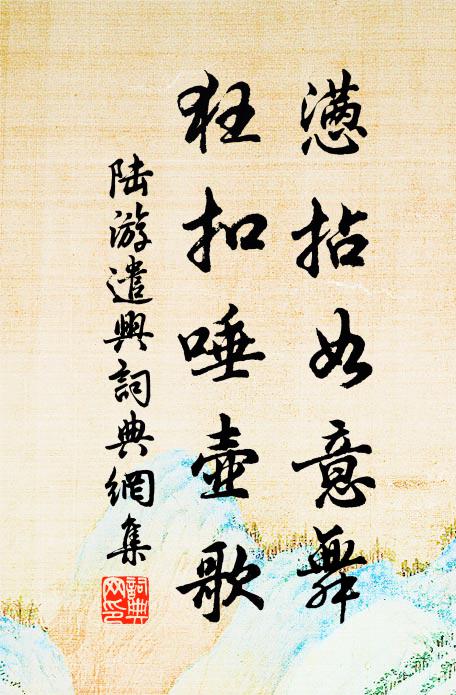 懣拈如意舞
狂扣唾壺歌
陸游遣興詞典網集
詞典
网印